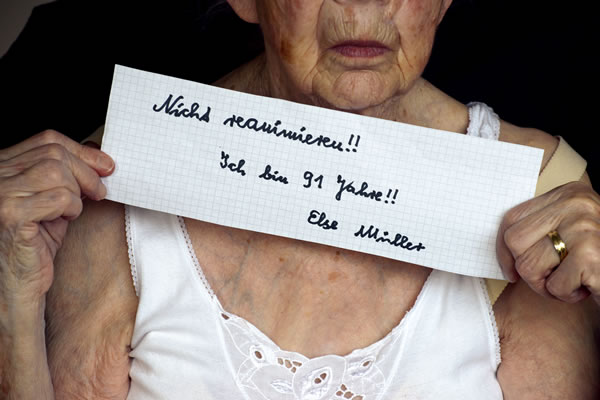 Nicht reanimieren!!
Ich bin 91 Jahre!!
Else Müller